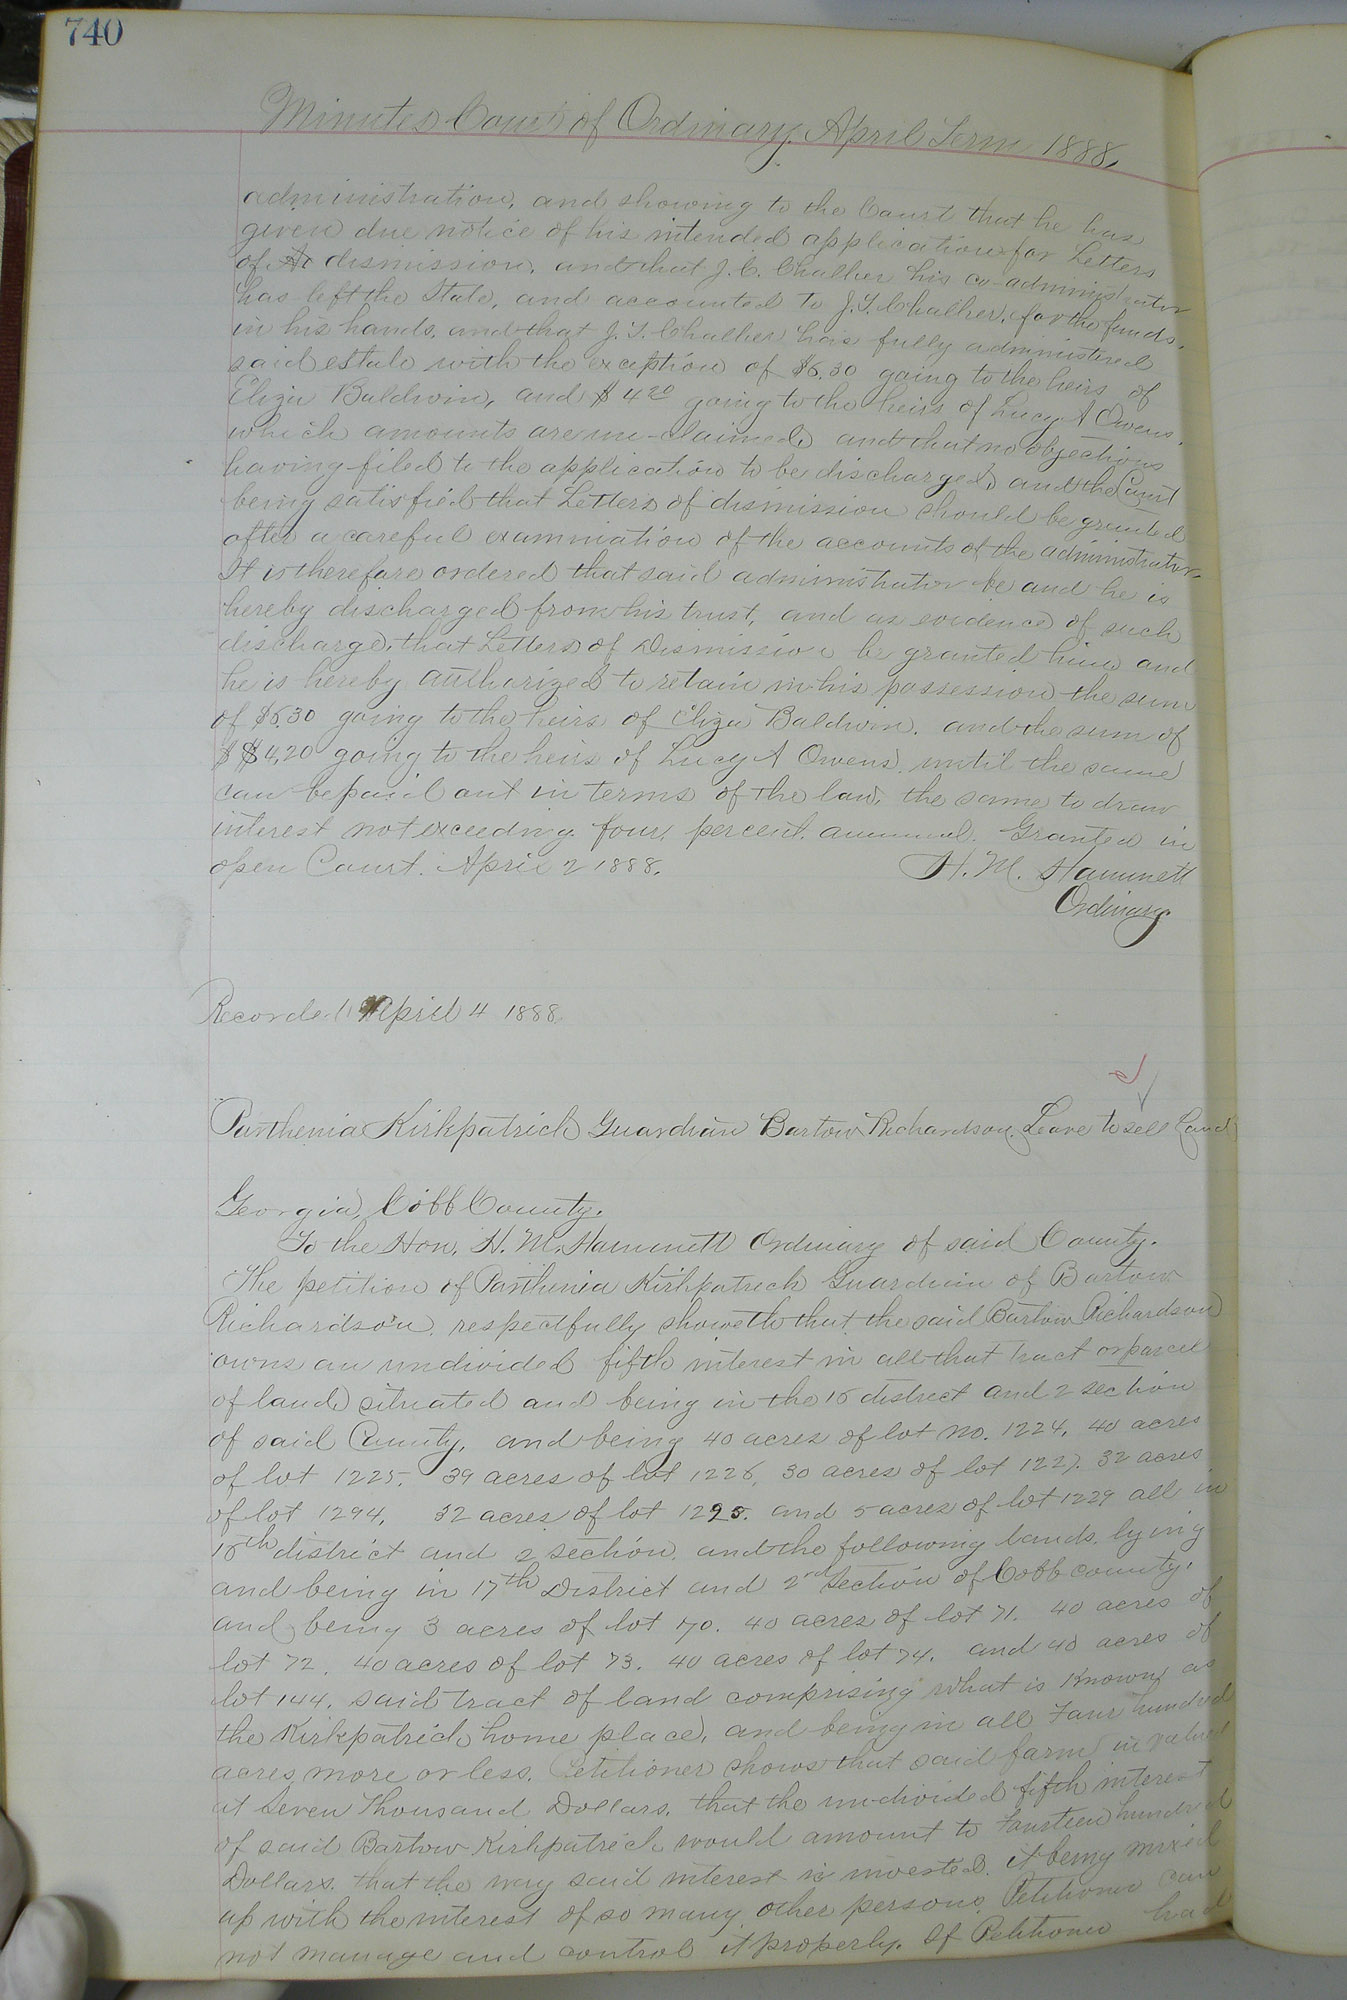 740
Minutes Court of Ordinary April Term 1888.
administration, and showing to the Court that he has
given due notice of his intended application for Letters
of dismission, and that J. C. Chalker his co-administrator
has left the State, and accounted to J. T. Chalker, for the funds
in his hands, and that J. T. Chalker has fully administered
said estate with the exception of $6.30 going to the heirs of
Eliza Baldwin, and $4 20 going to the heirs of Lucy A Owens,
which amounts are un-claimed, and that no objections
having filed to the application to be discharged, and the Court
being satisfied that Letters of dismission should be granted
after a careful examination of the accounts of the administrator.
It is therefore ordered that said administrator be and he is
hereby discharged from his trust, and as evidence of such
discharge, that Letters of Dismission be granted him and
he is hereby authorized to retain in his possession the sum
of $6.30 going to the heirs of Eliza Baldwin, and the sum of
$ $4.20 going to the heirs of Lucy A Owens, until the same
can be paid out in terms of the law, the same to draw
interest not exceeding four percent. annual. Granted in
open Court. April 2 1888.
H. M. Hammett
Ordinary
Recorded April 4 1888.
Parthenia Kirkpatrick Guardian Bartow Richardson, Leave to sell Land
Georgia, Cobb County.
To the Hon. H. M. Hammett Ordinary of said County.
The petition of Parthenia Kirkpatrick Guardian of Bartow
Richardson, respectfully showeth that the said Bartow Richardson
owns an undivided fifth interest in all that tract or parcel
of land situated and being in the 16 district and 2 section
of said County, and being 40 acres of lot No. 1224, 40 acres
of lot 1225. 39 acres of lot 1226, 30 acres of lot 1227. 32 acres
of lot 1294, 32 acres of lot 1295. and 5 acres of lot 1229 all in
16th district and 2 section, and the following lands, lying
and being in 17th District and 2nd Section of Cobb county,
and being 3 acres of lot 70. 40 acres of lot 71. 40 acres of
lot 72, 40 acres of lot 73. 40 acres of lot 74. and 40 acres of
lot 144, said tract of land comprising what is known as
the Kirkpatrick home place, and being in all Four hundred
acres, more or less. Petitioner shows that said farm is valued
at Seven Thousand Dollars, that the undivided fifth interest
of said Bartow Kirkpatrick would amount to Fourteen hundred
Dollars. that the way said interest is invested, it being mixed
up with the interest of so many other persons, Petitioner can
not manage and control it properly. If Petitioner had